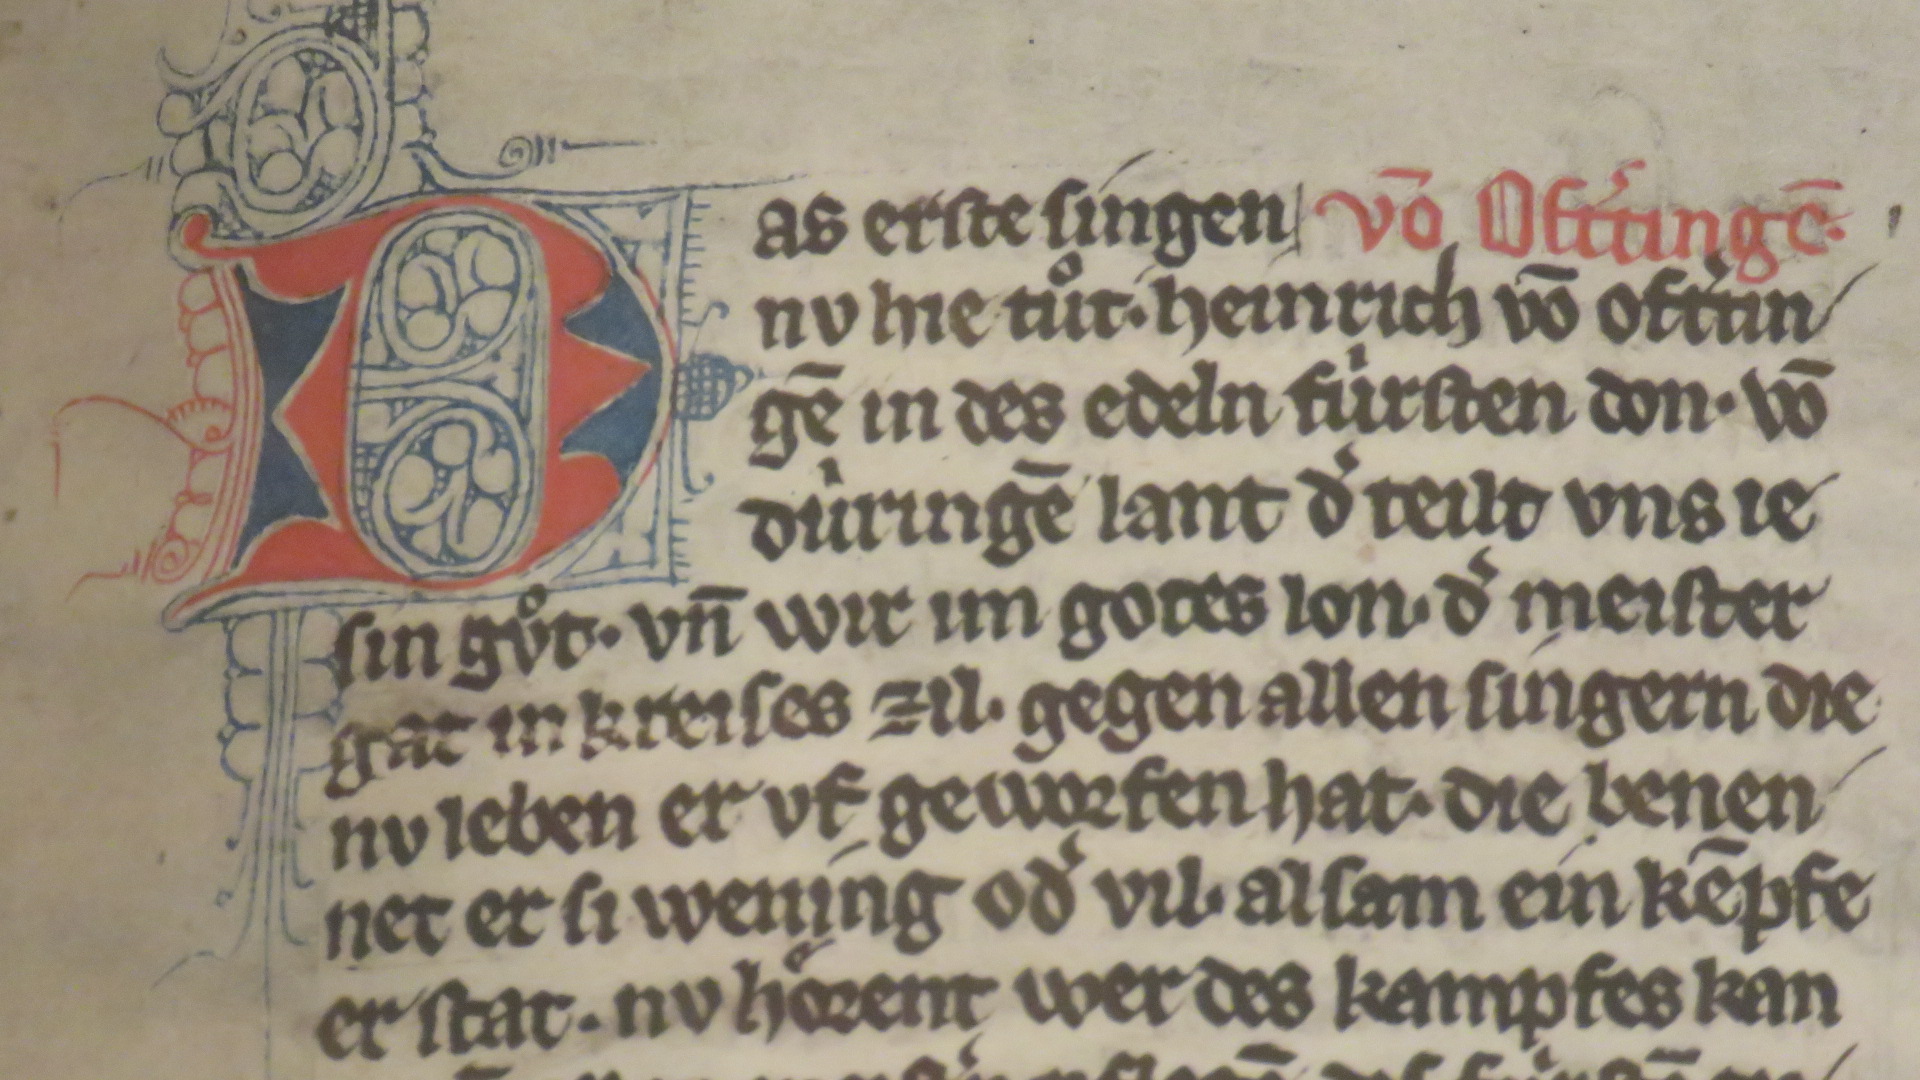 Das erste singen vō Oft'tingē·
nv hie tuͦt· heinrich vō oft'tin
gē in des edeln fúrsten don· vō
dúringē lant d' teilt vns ie
sin guͦt· vn̄ wir im gotes lon· d' meister
gat in kreises zil· gegen allen singern die
nv leben er vf geworfen hat· die benen
net er si wening od' vil· alsam ein kēpfe
er stat· nv hoͤrent wer des kampfes kan